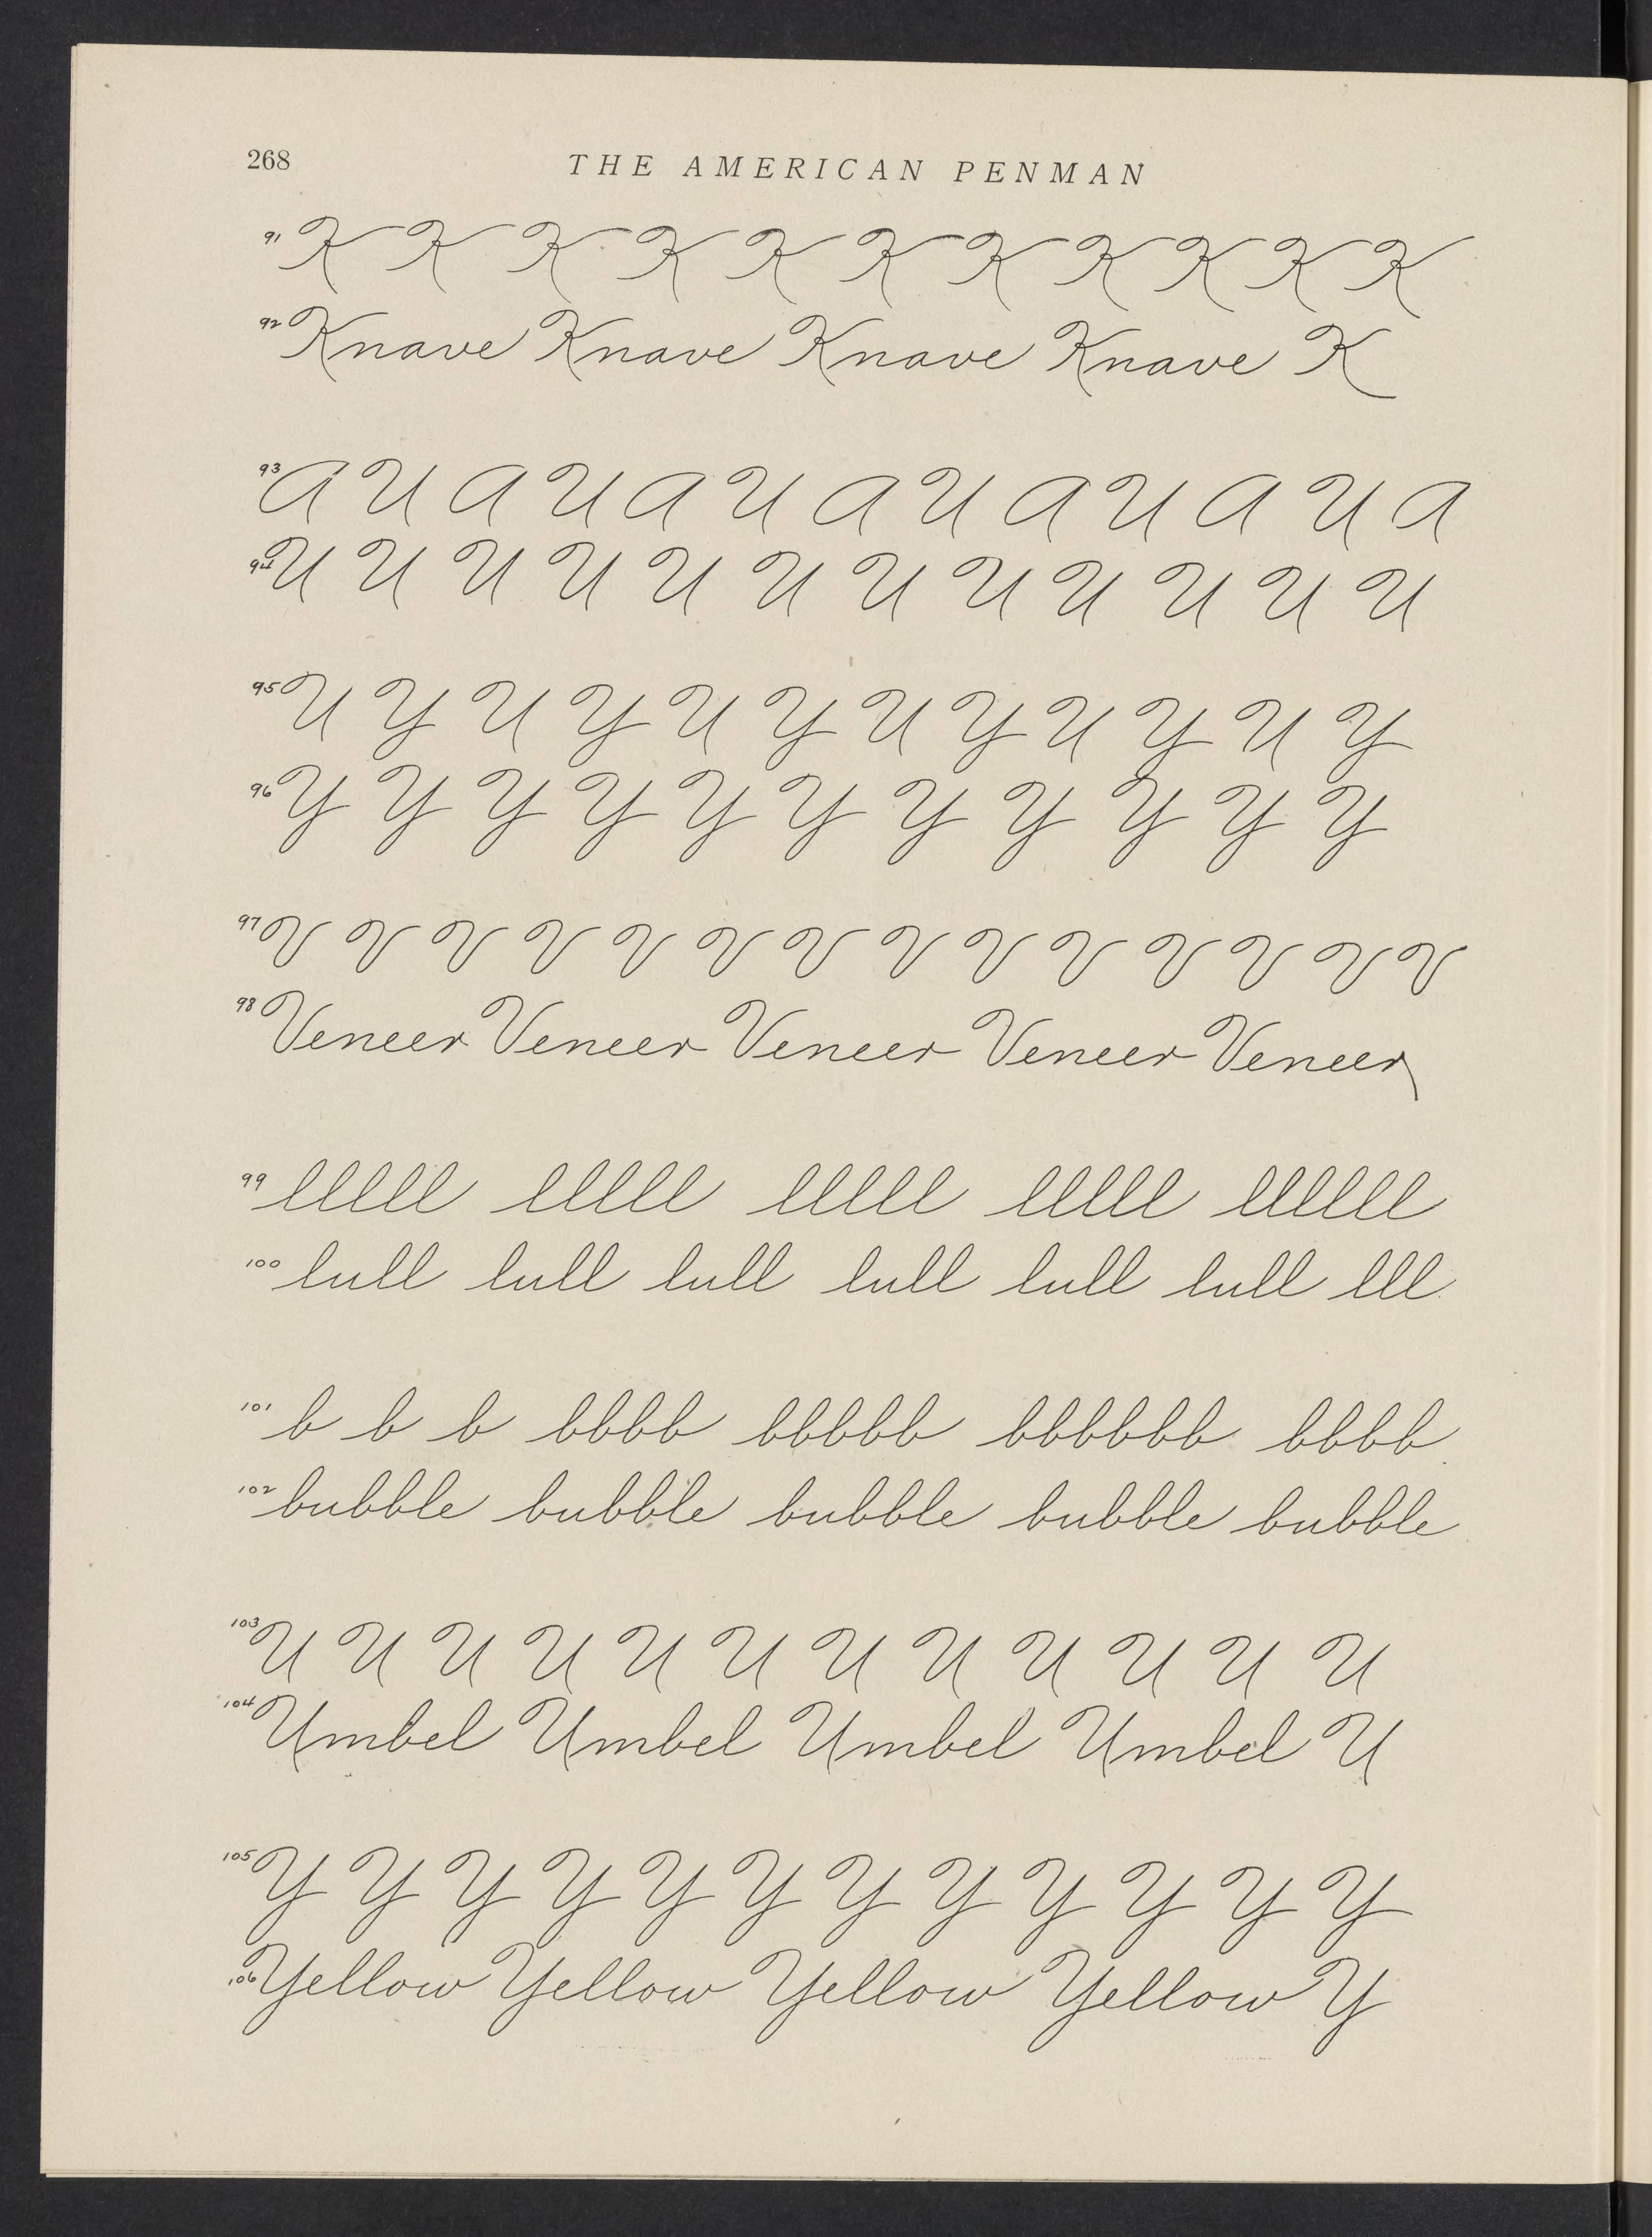 268 THE AMERICAN PENMAN
91 K K K K K K K K K K K
92 Knave Knave Knave Knave K
93 A U A U A U A U A U A U A
94 U U U U U U U U U U U U
95 U Y U Y U Y U Y U Y U Y
96 Y Y Y Y Y Y Y Y Y Y Y
97 V V V V V V V V V V V V V V
98 Veneer Veneer Veneer Veneer Veneer
99 lllll lllll lllll lllll llllll
100 lull lull lull lull lull lull lll
101 b b b bbbb bbbbb bbbbbb bbbb
102 bubble bubble bubble bubble bubble
103 U U U U U U U U U U U U
104 Umbel Umbel Umbel Umbel U
105 Y Y Y Y Y Y Y Y Y Y Y Y
106 Yellow Yellow Yellow Yellow Y